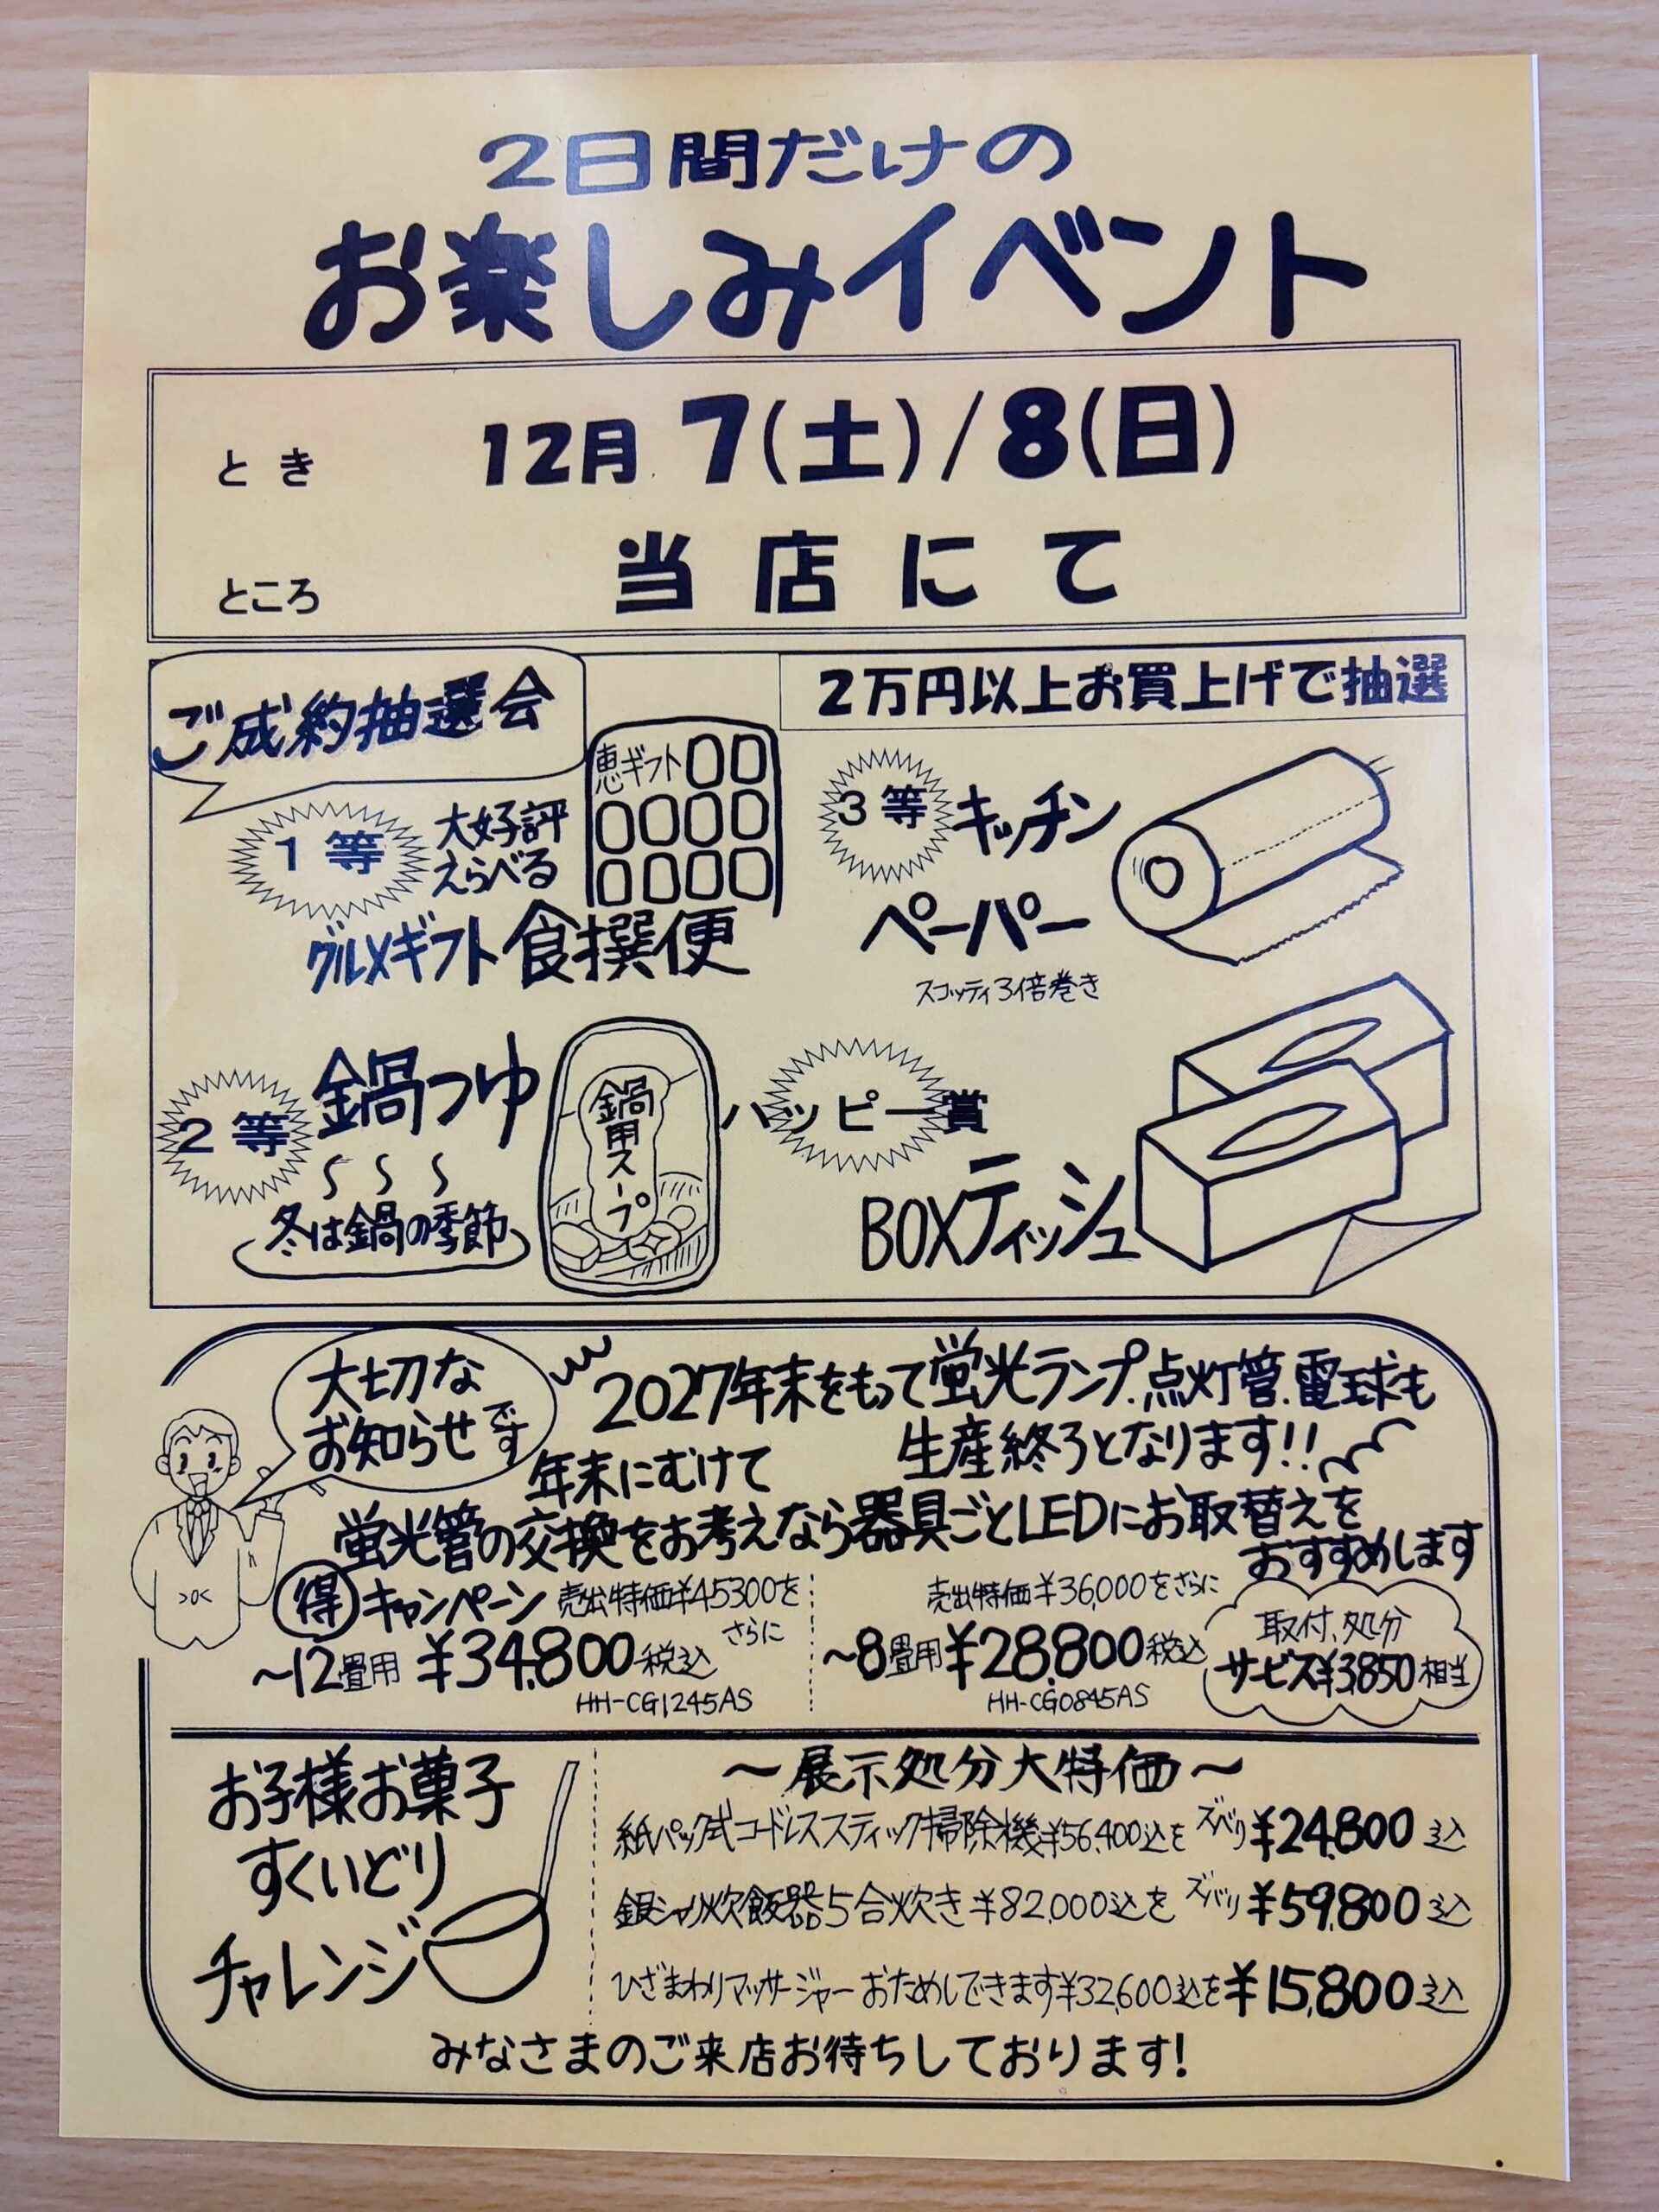 2日間だけの
お楽しみイベント
とき 12月 7(土)/8(日)
ところ 当店にて
ご成約抽選会
2万円以上お買上げで抽選
1等 大好評
えらべる
グルメギフト食撰便
恵ギフト
3等 キッチン
ペーパー
スコッティ3倍巻き
2等 鍋つゆ
冬は鍋の季節
鍋用スープ
ハッピー賞
BOXティッシュ
大切な
お知らせです
2027年末をもって蛍光ランプ.点灯管.電球も
生産終了となります!!
年末にむけて
蛍光管の交換をお考えなら器具ごとLEDにお取替えを
おすすめします
得 キャンペーン 売出特価¥45300を
さらに
~12畳用 ¥34,800税込
HH-CG1245AS
売出特価¥36,000をさらに
~8畳用¥28,800税込
HH-CG0845AS
取付、処分
サービス¥3,850相当
お子様お菓子
すくいどり
チャレンジ
~展示処分大特価~
紙パック式コードレススティック掃除機¥56,400込を ズバリ¥24,800込
銀シャリ炊飯器5合炊き¥82,000込を ズバリ¥59,800込
ひざまわりマッサージャーおためしできます¥32,600込を¥15,800込
みなさまのご来店お待ちしております!